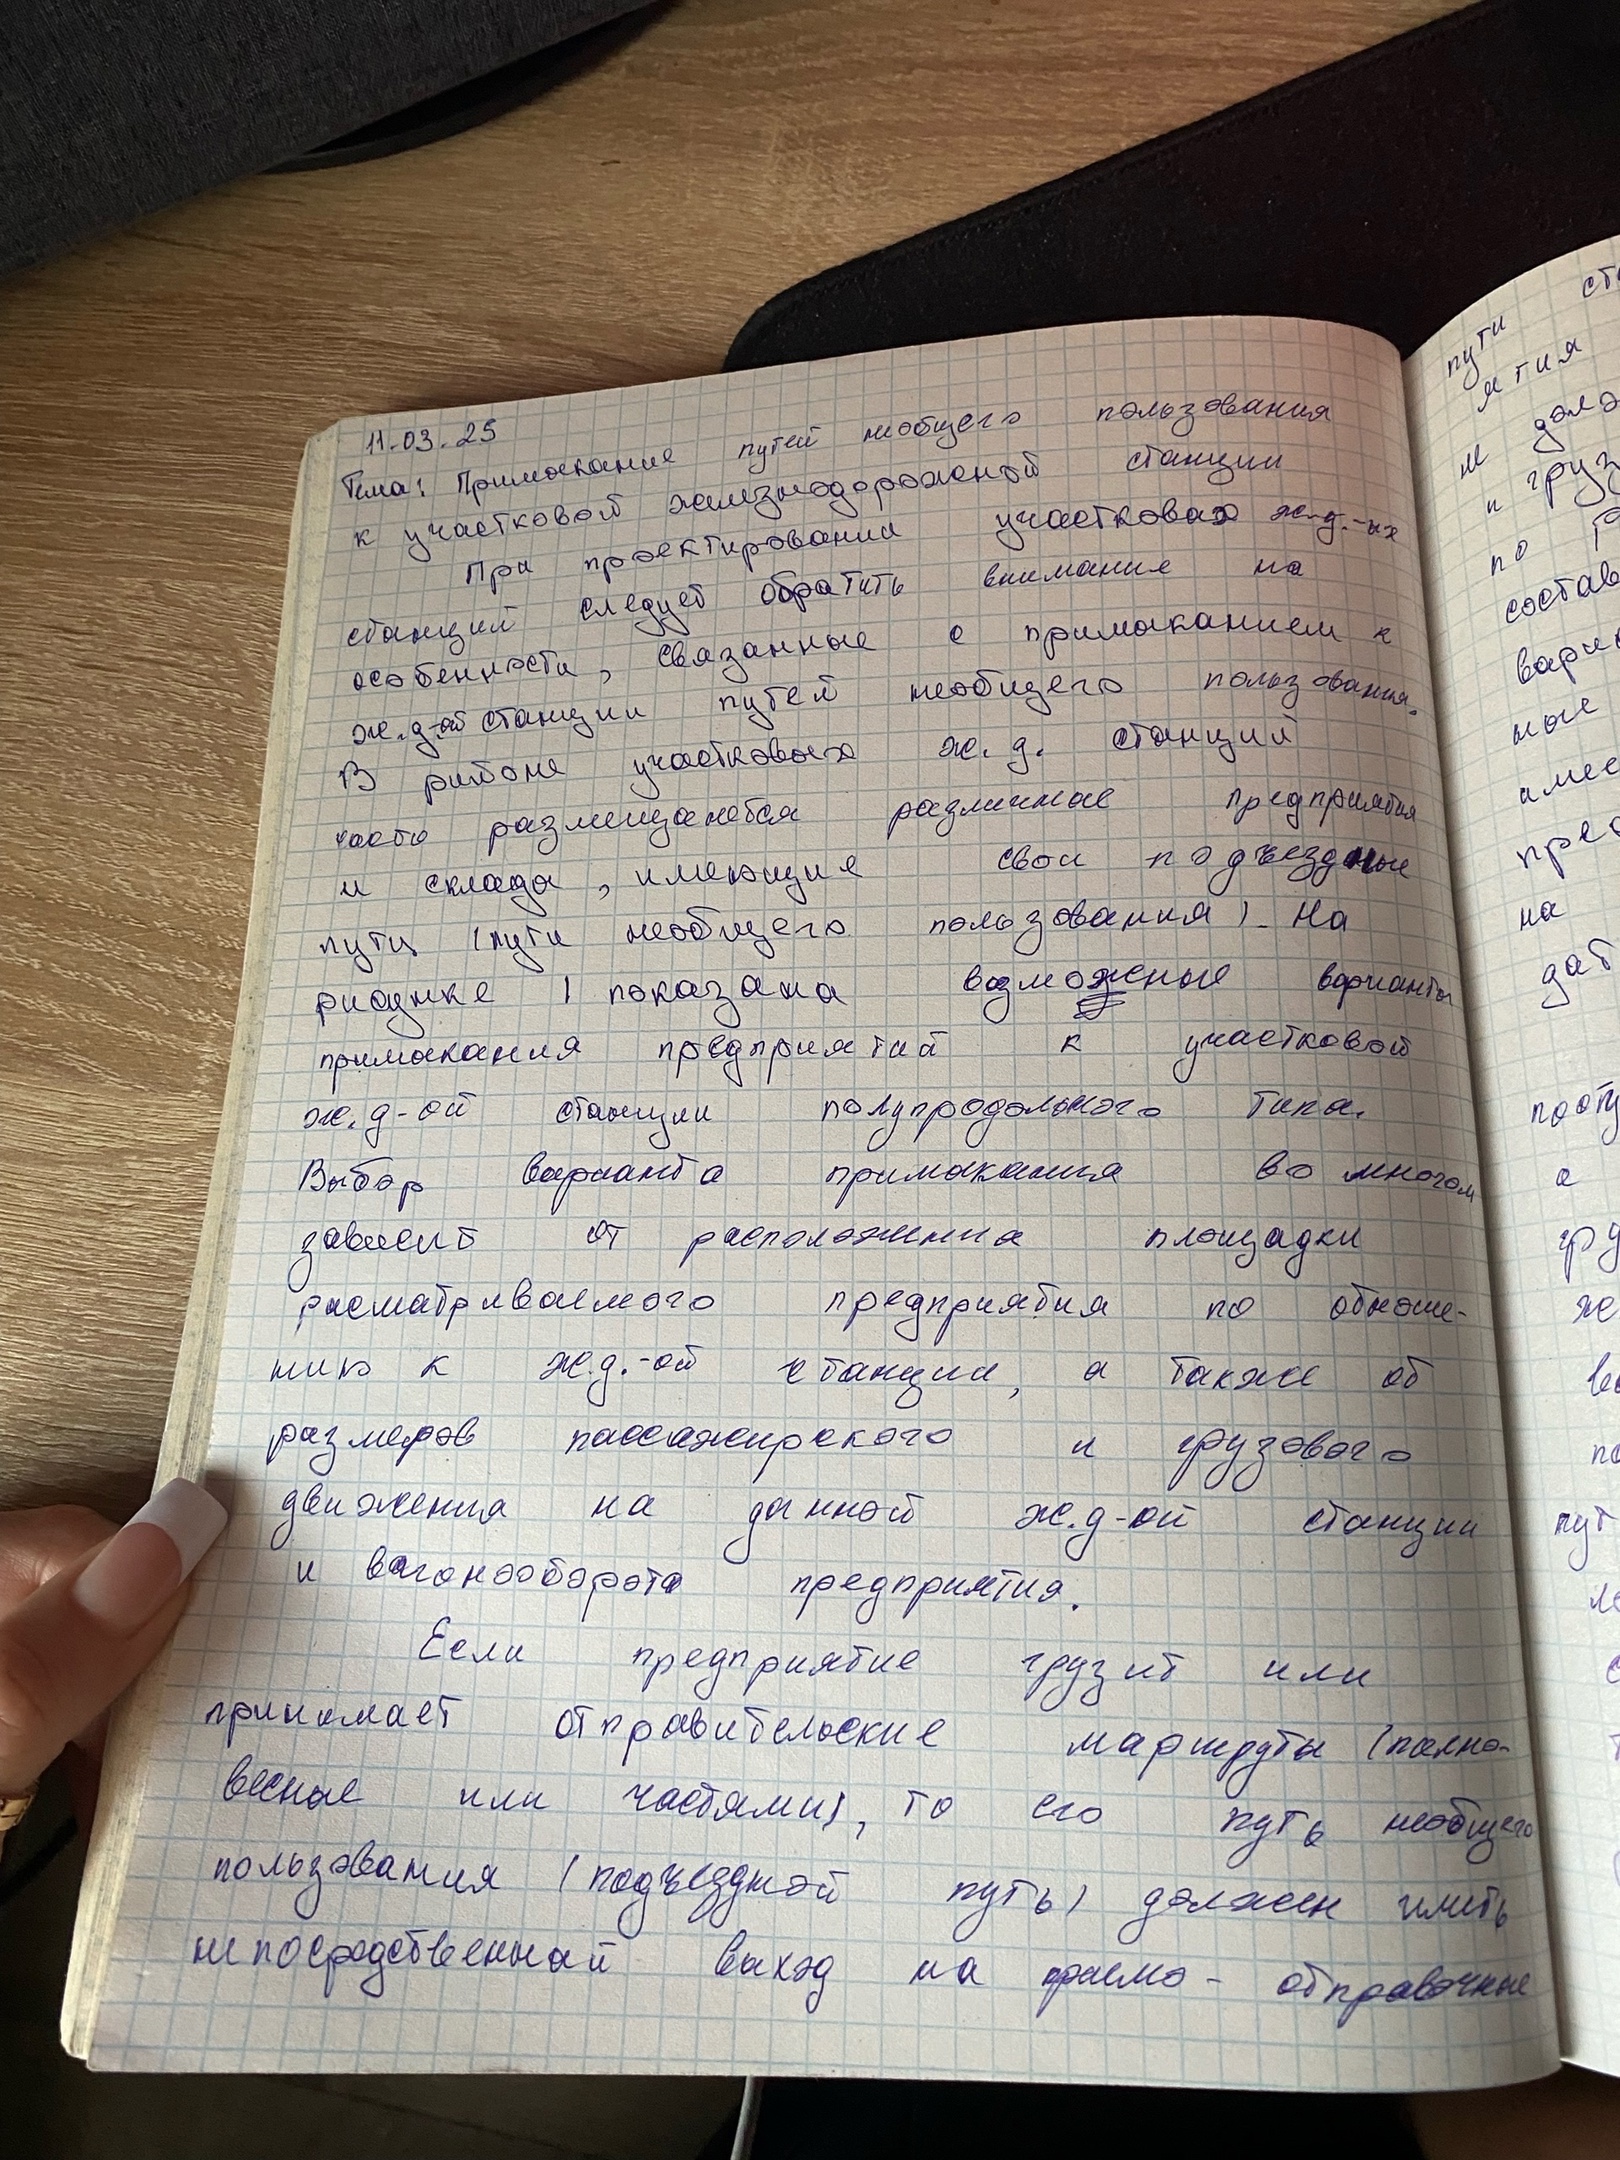 11.03.25
Тема: Примыкание путей необщего пользования
к участковой железнодорожной станции
При проектировании участковых ж.д.-ых
станций следует обратить внимание на
особенности, связанные с примыканием к
ж.д-ой станции путей необщего пользования.
В районе участковых ж.д. станций
часто размещаются различные предприятия
и склады, имеющие свои подъездные
пути (пути необщего пользования). На
рисунке 1 показаны возможные варианты
примыкания предприятий к участковой
ж.д-ой станции полупродольного типа.
Выбор варианта примыкания во многом
зависит от расположения площадки
расматриваемого предприятия по отноше-
нию к ж.д.-ой станции, а также от
размеров пассажирского и грузового
движения на данной ж.д-ой станции
и вагонооборота предприятия.
Если предприятие грузит или
принимает отправительские маршруты (полно-
весные или частями), то его путь необщего
пользования (подъездной путь) должен иметь
непосредственный выход на приемо-отправочные
пути
ятия
не
и груз
по
состав
вари
ные
име
пред
на
дат
пост
а
гру
же
во
по
пут